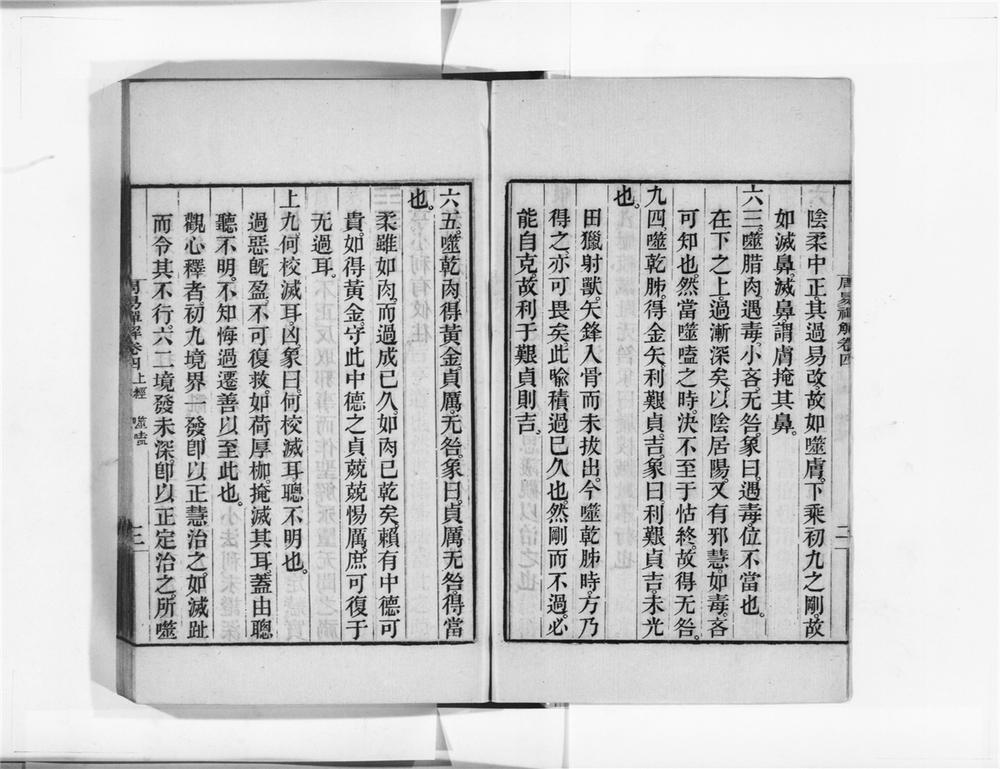 周易禪解卷四
二
陰柔中正其過易改。故如噬膚。下乘初九之剛故
如滅鼻。滅鼻謂膚掩其鼻。
六三。噬腊肉。遇毒。小吝。无咎。象曰。遇毒。位不當也。
在下之上。過漸深矣。以陰居陽。又有邪慧。如毒。吝
可知也。然當噬嗑之時。決不至于怙終。故得无咎。
九四。噬乾胏。得金矢。利艱貞。吉。象曰。利艱貞吉。未光
也。
田獵射獸。矢鋒入骨而未拔出。今噬乾胏時。方乃
得之。亦可畏矣。此喻積過已久也。然剛而不過。必
能自克。故利于艱貞則吉。
六五。噬乾肉。得黃金。貞厲。无咎。象曰。貞厲无咎。得當
也。
柔雖如肉。而過成已久。如肉已乾矣。賴有中德可
貴。如得黃金。守此中德之貞。兢兢惕厲。庶可復于
无過耳。
上九。何校滅耳。凶。象曰。何校滅耳。聰不明也。
過惡旣盈。不可復救。如荷厚枷。掩滅其耳。蓋由聰
聽不明。不知悔過遷善。以至此也。
觀心釋者。初九境界一發。卽以正慧治之。如滅趾
而令其不行。六二境發未深。卽以正定治之。所噬
周易禪解卷四 上經 噬嗑
三